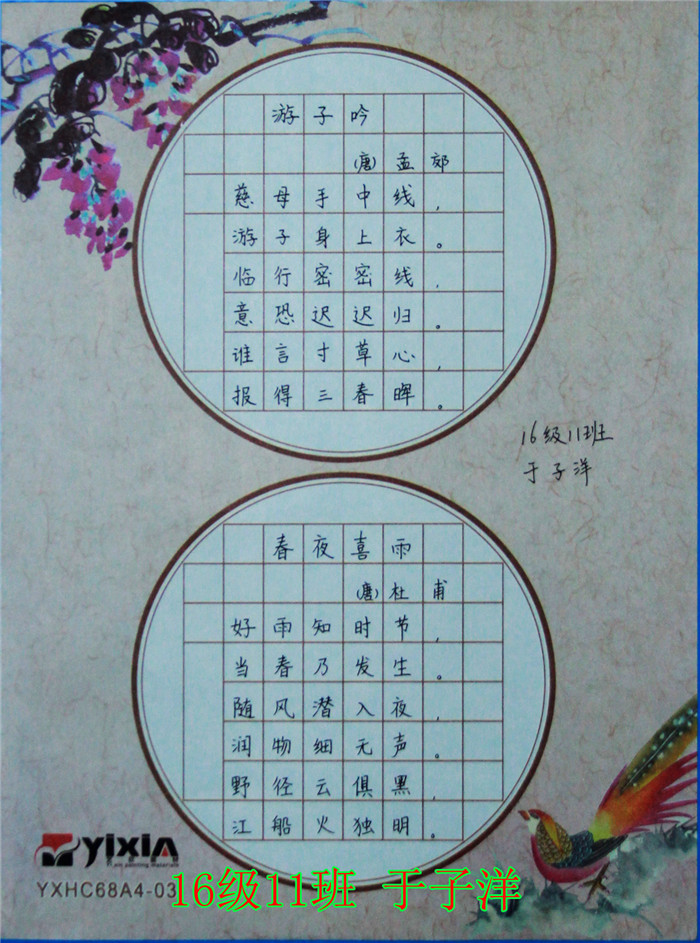 游子吟
(唐)孟郊
慈母手中线,
游子身上衣。
临行密密线,
意恐迟迟归。
谁言寸草心,
报得三春晖。
16级11班
于子洋
春夜喜雨
(唐)杜甫
好雨知时节,
当春乃发生。
随风潜入夜,
润物细无声。
野径云俱黑,
江船火独明。
yixin
YXHC68A4-03
16级11班 于子洋